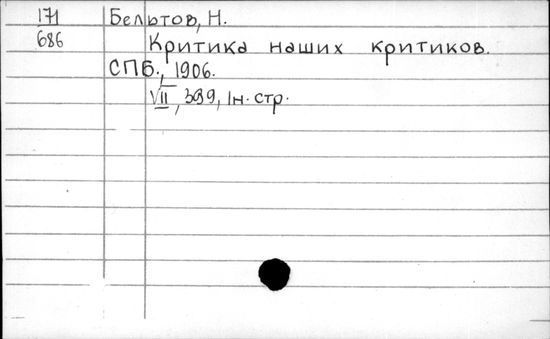 171 Бельтов, Н.
686 Критика наших критиков.
СПБ., 1906.
VII, 399, Iн. стр.